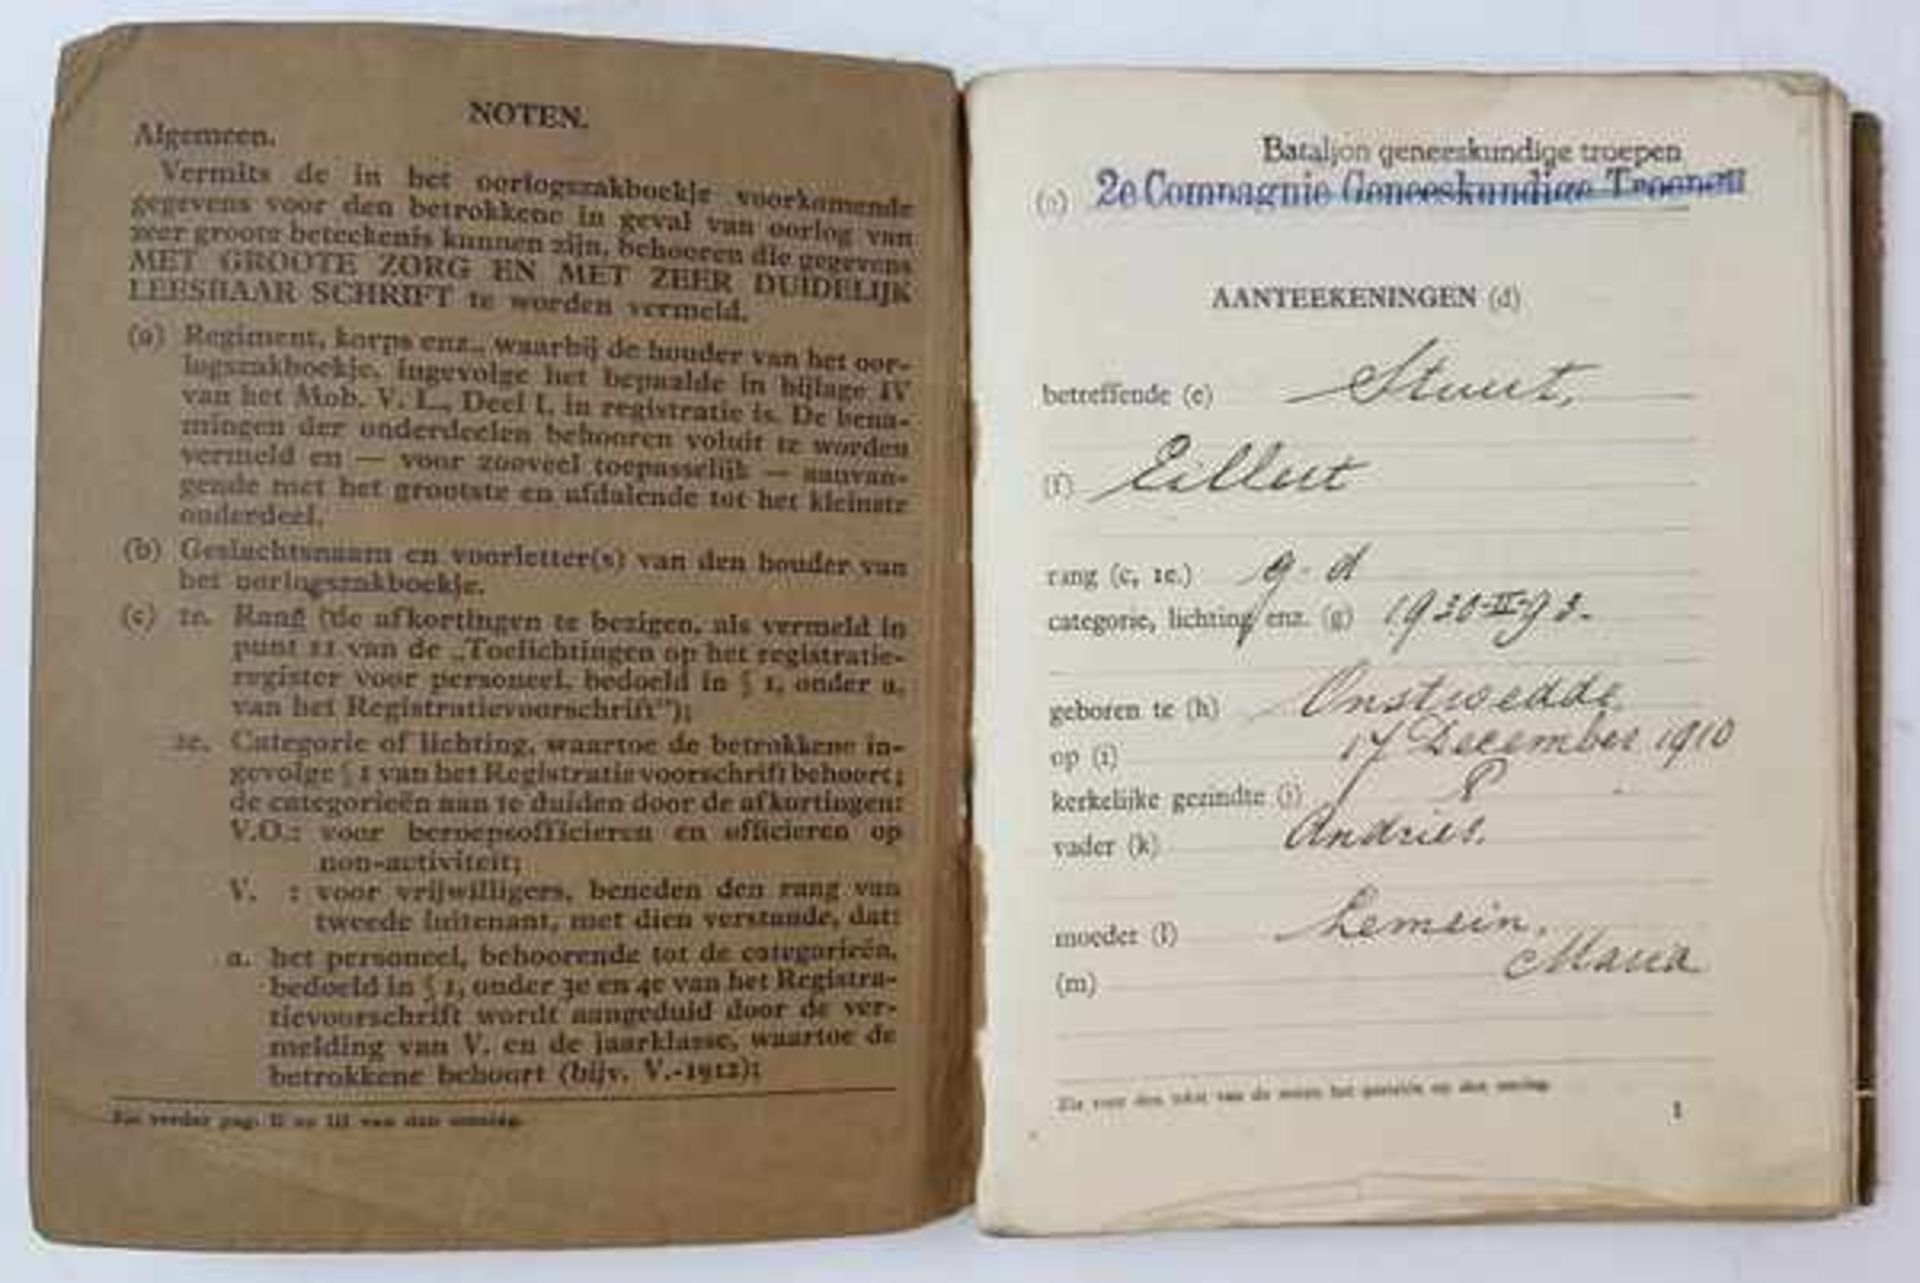 NOTEN.
Algemeen.
Vermits de in het oorlogszakboekje voorkomende
gegevens voor den betrokkene in geval van oorlog van
zeer groote beteekenis kunnen zijn, behooren die gegevens
MET GROOTE ZORG EN MET ZEER DUIDELIJK
LEESBAAR SCHRIFT te worden vermeld.
(a) Regiment, korps enz., waarbij de houder van het oor-
logszakboekje, ingevolge het bepaalde in bijlage IV
van het Mob. V. L., Deel I, in registratie is. De bena-
mingen der onderdeelen behooren voluit te worden
vermeld en — voor zooveel toepasselijk — aanvan-
gende met het grootste en afdalende tot het kleinste
onderdeel.
(b) Geslachtsnaam en voorletter(s) van den houder van
het oorlogszakboekje.
(c) 1e. Rang (de afkortingen te bezigen, als vermeld in
punt 11 van de „Toelichtingen op het registratie-
register voor personeel, bedoeld in § 1, onder a,
van het Registratievoorschrift");
2e. Categorie of lichting, waartoe de betrokkene in-
gevolge § 1 van het Registratievoorschrift behoort;
de categorieën aan te duiden door de afkortingen:
V.O.: voor beroepsofficieren en officieren op
non-activiteit;
V. : voor vrijwilligers, beneden den rang van
tweede luitenant, met dien verstande, dat:
a. het personeel, behoorende tot de categorieën,
bedoeld in § 1, onder 3e en 4e van het Registra-
tievoorschrift wordt aangeduid door de ver-
melding van V. en de jaarklasse, waartoe de
betrokkene behoort (bijv. V.-1912);
Zie verder pag. II en III van den omslag.
Bataljon geneeskundige troepen
(a) 2e Compagnie Geneeskundige Troepen
AANTEEKENINGEN (d)
betreffende (e) Stuut,
(f) Eillert
rang (c, 1e.) g-d
categorie, lichting enz. (g) 1930-II-93.
geboren te (h) Onstwedde
op (i) 17 December 1910
kerkelijke gezindte (j) P
vader (k) Andries.
moeder (l) Lemein,
Maria
(m)
Zie voor den tekst van de noten het gestelde op den omslag.
1